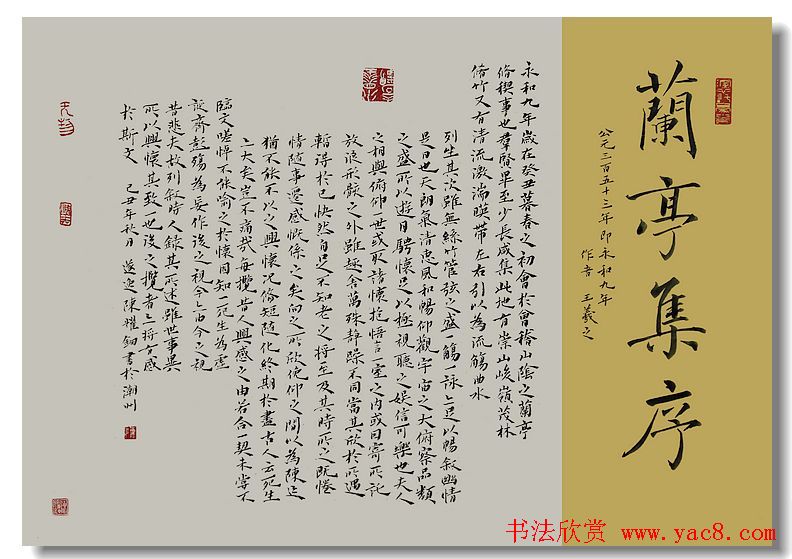 蘭亭集序
公元三百五十三年即永和九年
作者 王羲之
永和九年歲在癸丑暮春之初會於會稽山陰之蘭亭
脩禊事也羣賢畢至少長咸集此地有崇山峻嶺茂林
脩竹又有清流激湍暎帶左右引以為流觴曲水
列坐其次雖無絲竹管弦之盛一觴一詠亦足以暢敘幽情
是日也天朗氣清惠風和暢仰觀宇宙之大俯察品類
之盛所以遊目騁懷足以極視聽之娛信可樂也夫人
之相與俯仰一世或取諸懷抱悟言一室之內或因寄所託
放浪形骸之外雖趣舍萬殊靜躁不同當其欣於所遇
暫得於己快然自足不知老之將至及其時所之既惓
情隨事遷感慨係之矣向之所欣俛仰之間以為陳迹
猶不能不以之興懷況脩短隨化終期於盡古人云死生
亦大矣豈不痛哉每攬昔人興感之由若合一契未嘗不
臨文嗟悼不能喻之於懷固知一死生為虛
誕齊彭殤為妄作後之視今亦由今之視
昔悲夫故列敘時人錄其所述雖世事異
所以興懷其致一也後之攬者亦將有感
於斯文 己丑年秋月 陳耀 書於潮州
书法欣赏 www.yac8.com